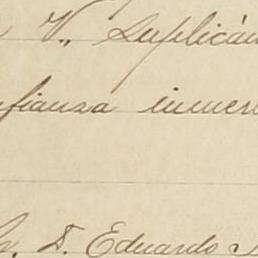 V., suplicán
fianza inmere
D. Eduardo